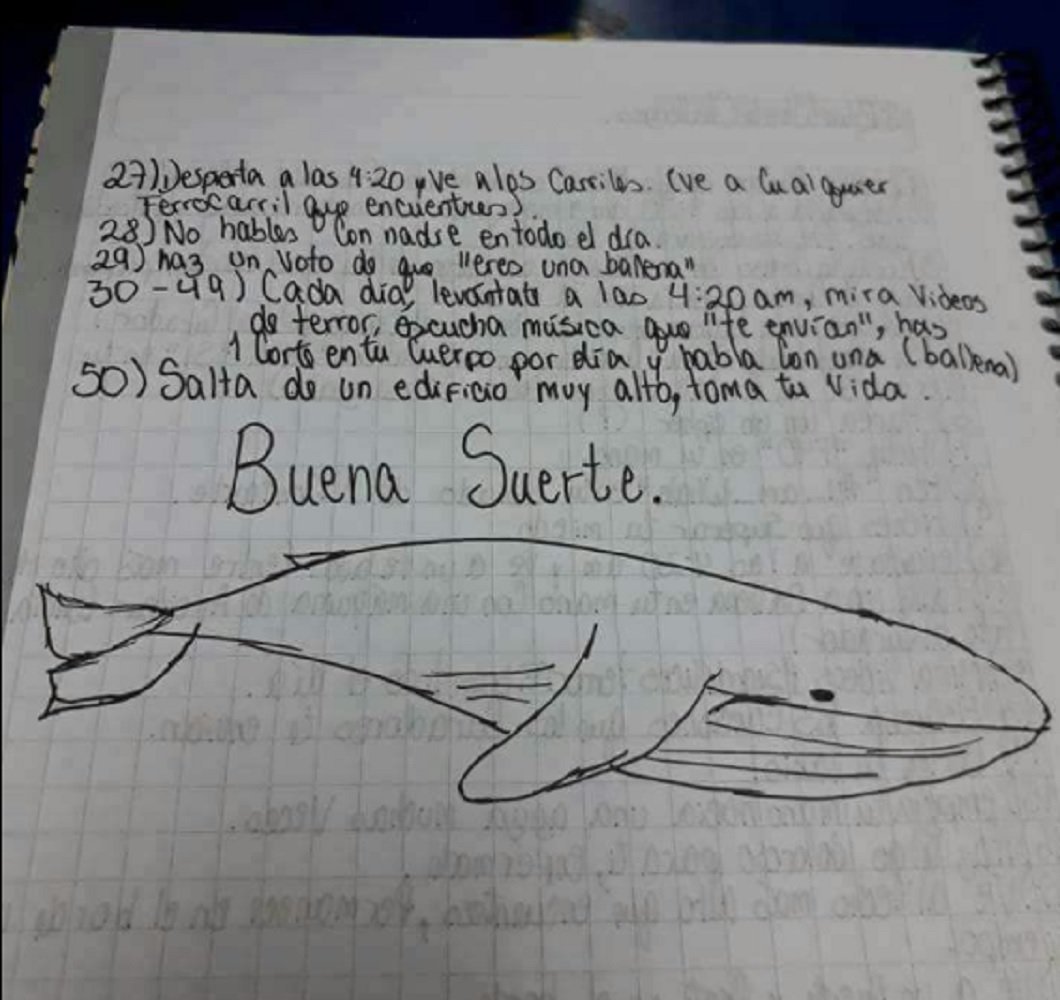 27) Desperta a las 4:20 y ve a los Carriles. (ve a Cualquier
Ferrocarril que encuentres).
28) No hables Con nadie en todo el día.
29) haz un voto de que "eres una ballena"
30-49) Cada día, levántate a las 4:20am, mira Videos
de terror, escucha música que "te envían", has
1 Corte en tu Cuerpo por día y habla Con una (ballena)
50) Salta de un edificio muy alto, toma tu Vida.
Buena Suerte.